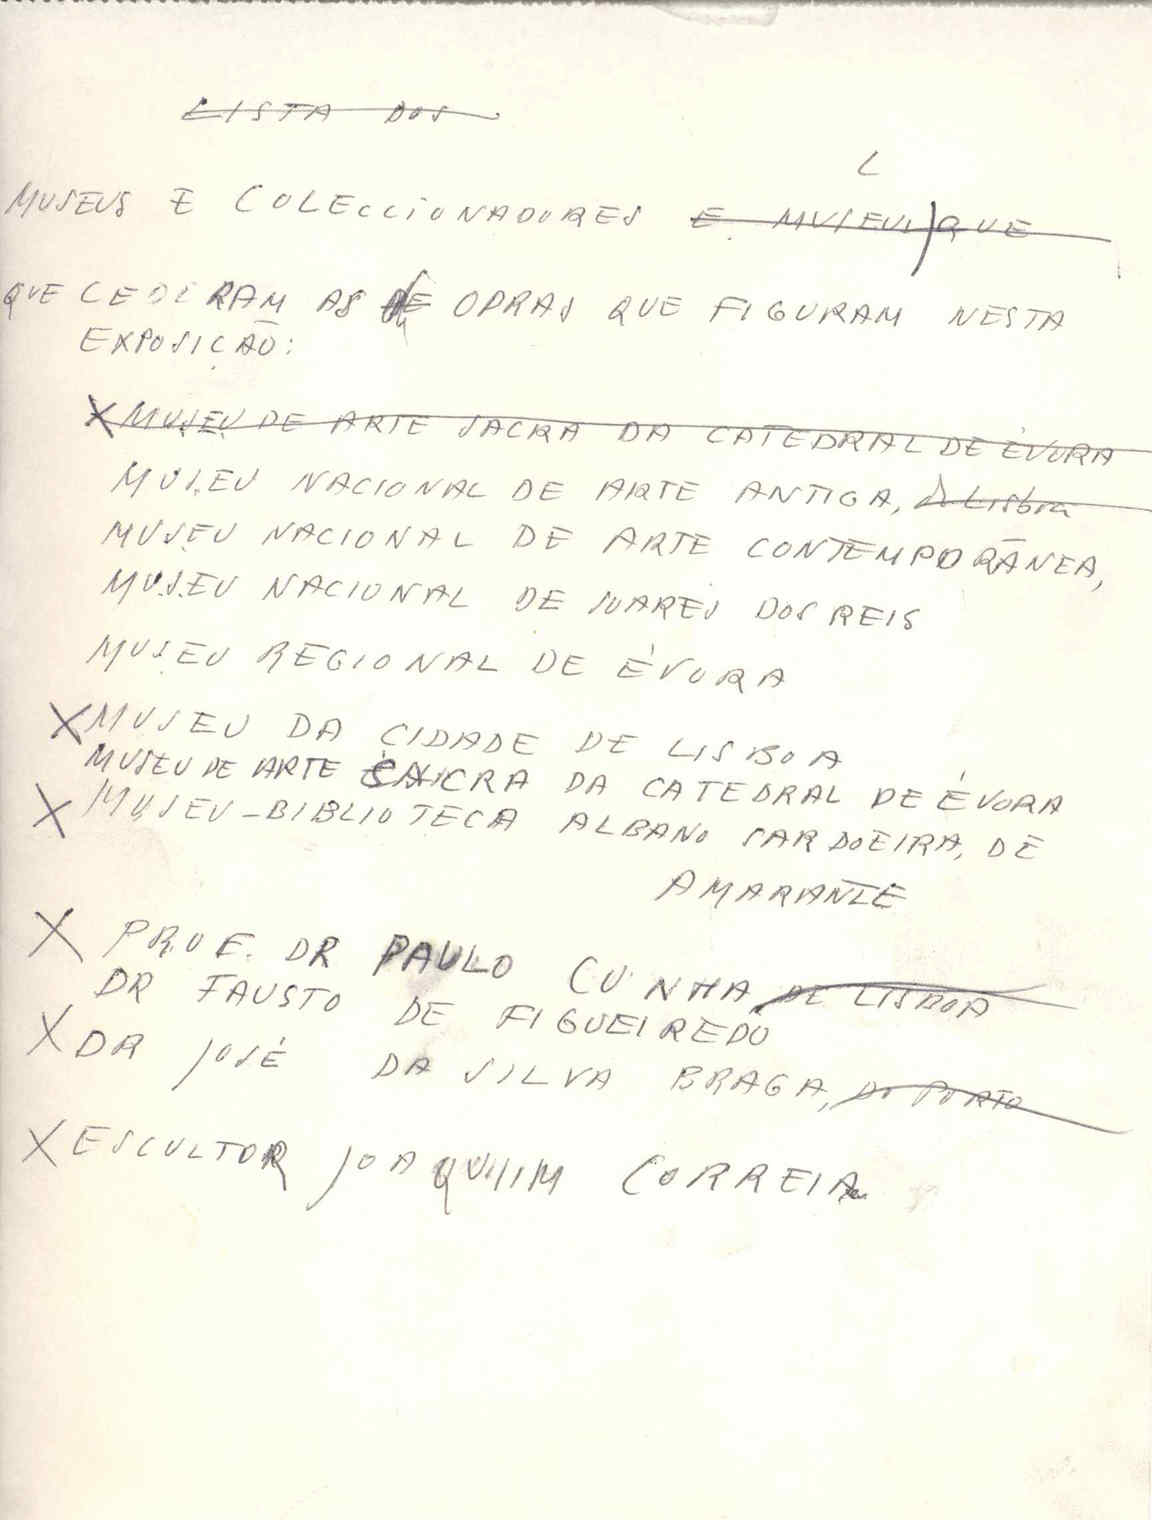 LISTA DOS
L
MUSEUS E COLECCIONADORES E MUSEUS QUE
QUE CEDERAM AS DE OPRAS QUE FIGURAM NESTA
EXPOSIÇÃO:
X MUSEU DE ARTE SACRA DA CATEDRAL DE ÉVORA
MUSEU NACIONAL DE ARTE ANTIGA, de Lisboa
MUSEU NACIONAL DE ARTE CONTEMPORÂNEA,
MUSEU NACIONAL DE SOARES DOS REIS
MUSEU REGIONAL DE ÉVORA
X MUSEU DA CIDADE DE LISBOA
MUSEU DE ARTE SACRA DA CATEDRAL DE ÉVORA
X MUSEU-BIBLIOTECA ALBANO SARDOEIRA, DE
AMARANTE
X PROF. DR PAULO CUNHA, DE LISBOA
DR FAUSTO DE FIGUEIREDO
X DR JOSÉ DA SILVA BRAGA, DO PORTO
X ESCULTOR JOAQUIM CORREIA